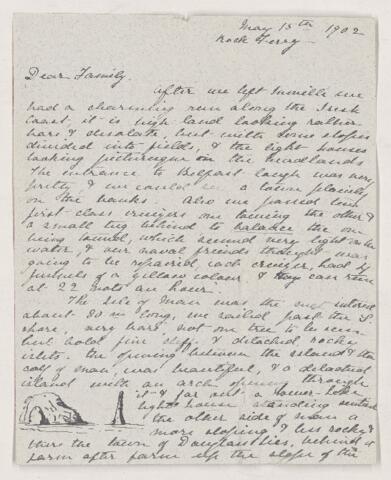 May 15th 1902
Rock Ferry
Dear Family.
After we left Inville we
had a charming run along the Irish
Coast, it is high land looking rather
bare & desolate, but with some slopes
divided into fields, & the light houses
looking picturesque on the headlands
The entrance to Belfast lough was very
pretty & we could see a town
on the banks. Also we passed two
first class cruizers one towing the other &
a small tug behind to balance the one
being towed, which seemed very light on the
water, & our naval friends thought was
going to be repaired each cruizer had
funnels of a yellow colour & they can run
at 22 knots an hour.
The Isle of Man was the next
about 30 m long, we sailed past the S.
shore, very bare not one tree to be seen
but bold fine cliffs & detached rocky
islets. the opening between the island & the
calf of man, was beautiful, & a detached
island with an arch opening through
it & far out a tower-like
light house standing sentinel
the other side of man is
more sloping & less rocky &
there the town of Douglas lies, behind it
farm after farm up the slope of the